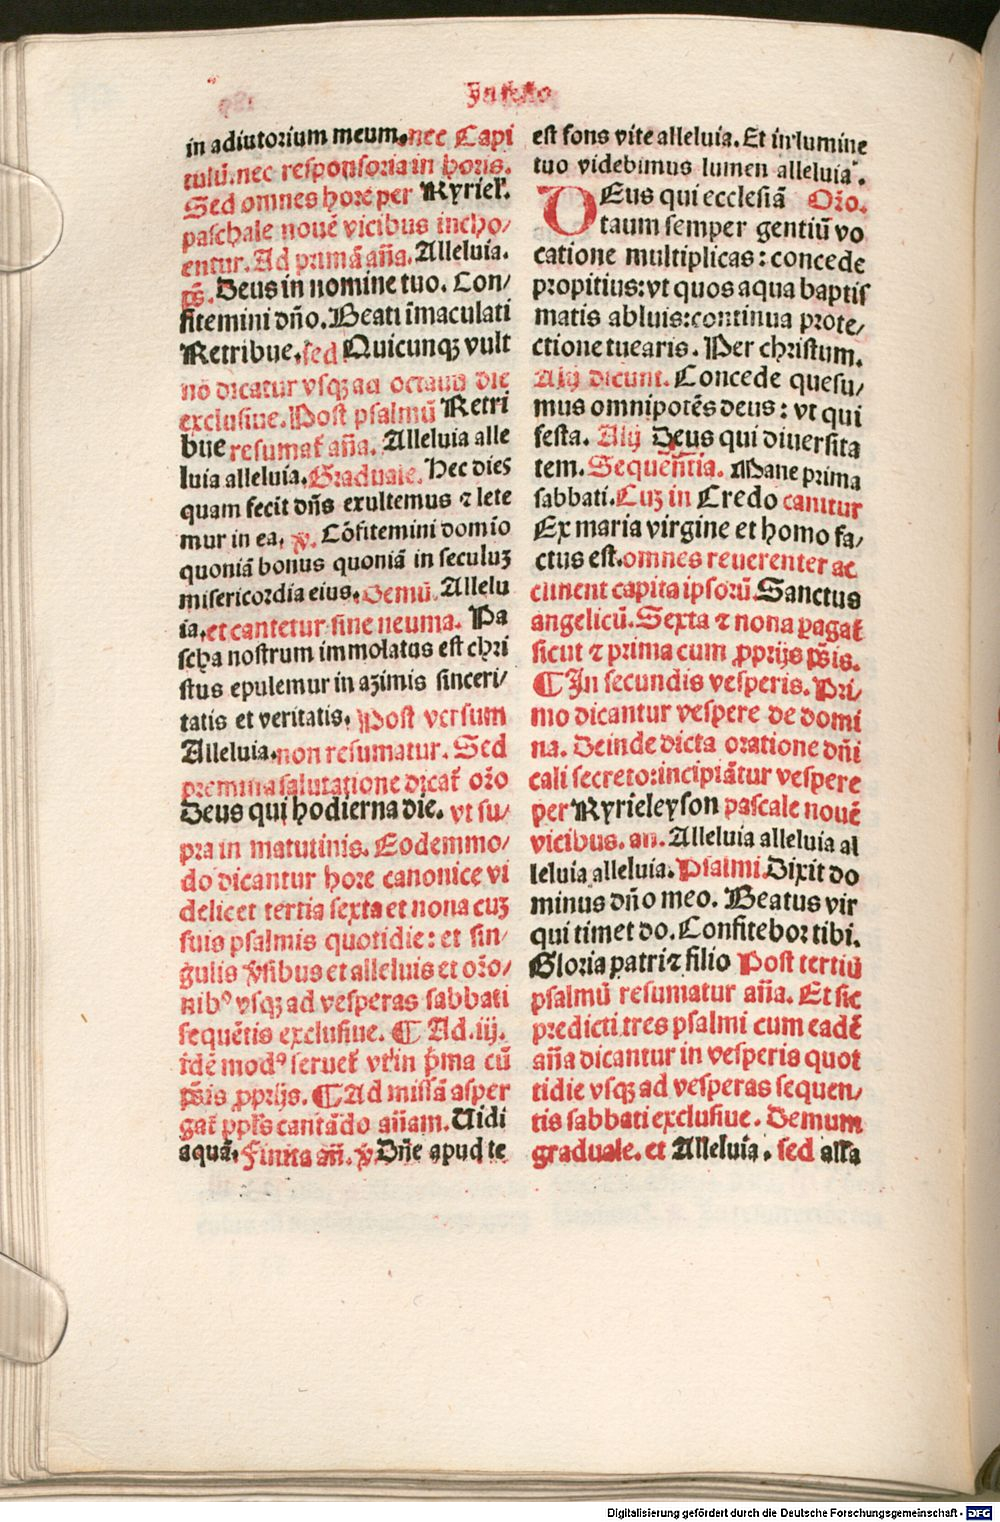 In festo
in adiutorium meum. nec Capi
tulũ. nec responsoria in horis.
Sed omnes hore per Kyriel̃.
paschale nouẽ vicibus incho/
entur. Ad primã añã. Alleluia.
p̃s. Deus in nomine tuo. Con/
fitemini dño. Beati ĩmaculati
Retribue. sed Quicunqꝫ vult
nõ dicatur vsqꝫ ad octauũ diẽ
exclusiue. Post psalmũ Retri
bue resumat᷑ añã. Alleluia alle
luia alleluia. Graduale. Hec dies
quam fecit dñs exultemus ⁊ lete
mur in ea. ꝟ. Cõfitemini domio
quoniã bonus quoniã in seculuꝫ
misericordia eius. Demũ. Allelu
ia. et cantetur sine neuma. Pa
scha nostrum immolatus est chri
stus epulemur in azimis sinceri/
tatis et veritatis. Post versum
Alleluia. non resumatur. Sed
premissa salutatione dicat᷑ orõ
Deus qui hodierna die. vt su/
pra in matutinis. Eodemmo/
do dicantur hore canonice vi
delicet tertia sexta et nona cuꝫ
suis psalmis quotidie: et sin/
gulis ꝟsibus et alleluis et orõ/
nibꝰ vsqꝫ ad vesperas sabbati
sequẽtis exclusiue. ¶ Ad .iij.
idẽ modꝰ seruet᷑ vt in p̃ma cũ
p̃sis ꝓprijs. ¶ Ad missã asper
gat᷑ ppl̃s cantãdo añam. Uidi
aquã. Finita añ. ꝟ. Dñe apud te
est fons vite alleluia. Et in lumine
tuo videbimus lumen alleluia.
DEus qui ecclesiã Orõ.
tuam semper gentiũ vo
catione multiplicas: concede
propitius: vt quos aqua baptis
matis abluis: continua prote/
ctione tuearis. Per christum.
Alij dicunt. Concede quesu/
mus omnipotẽs deus: vt qui
festa. Alij Deus qui diuersita
tem. Sequentia. Mane prima
sabbati. Cuꝫ in Credo canitur
Ex maria virgine et homo fa/
ctus est. omnes reuerenter ac
clinent capita ipsorũ. Sanctus
angelicũ. Sexta ⁊ nona ꝑagat᷑
sicut ⁊ prima cum ꝓprijs p̃sis.
¶ In secundis vesperis. Pri/
mo dicantur vespere de domi
na. Deinde dicta oratione dñi
cali secreto: incipiãtur vespere
per Kyrieleyson pascale nouẽ
vicibus. an. Alleluia alleluia al
leluia alleluia. Psalmi. Dixit do
minus dño meo. Beatus vir
qui timet do. Confitebor tibi.
Gloria patri ⁊ filio Post tertiũ
psalmũ resumatur añã. Et sic
predicti tres psalmi cum eadẽ
añã dicantur in vesperis quot
tidie vsqꝫ ad vesperas sequen/
tis sabbati exclusiue. Demum
graduale. et Alleluia. sed alľa
Digitalisierung gefördert durch die Deutsche Forschungsgemeinschaft - DFG